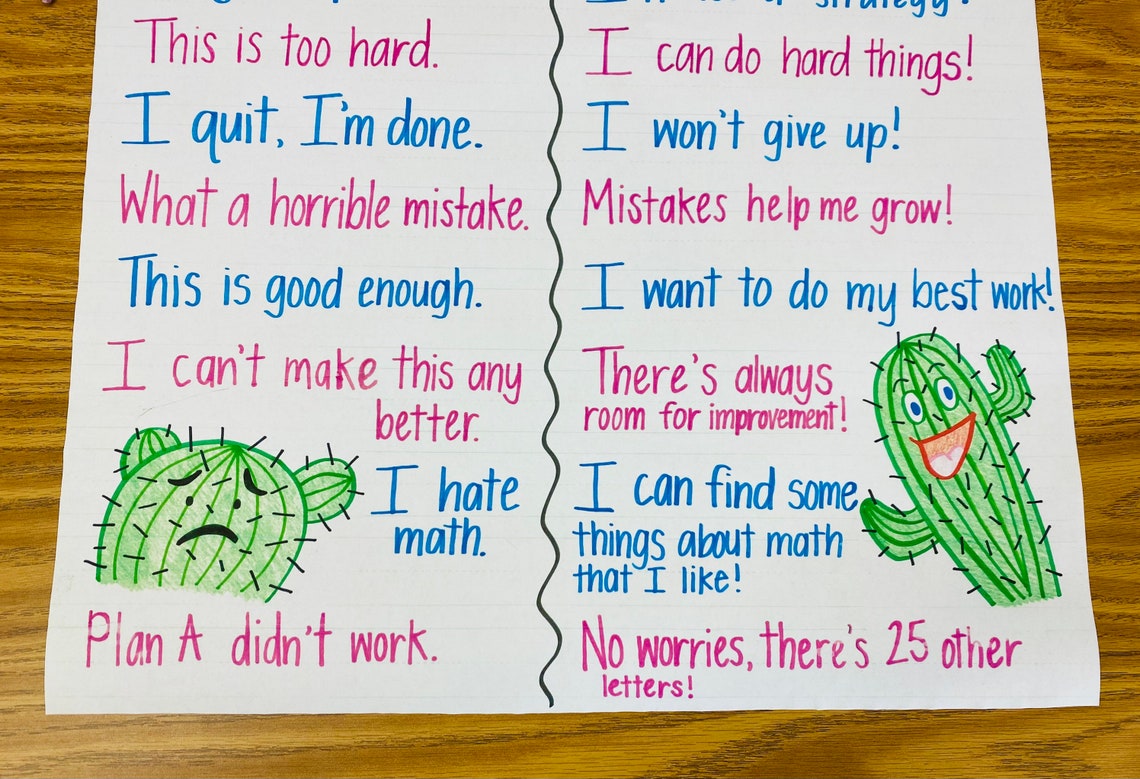 strategy!
This is too hard.
I can do hard things!
I quit, I'm done.
I won't give up!
What a horrible mistake.
Mistakes help me grow!
This is good enough.
I want to do my best work!
I can't make this any
better.
There's always
room for improvement!
I hate
math.
I can find some
things about math
that I like!
Plan A didn't work.
No worries, there's 25 other
letters!